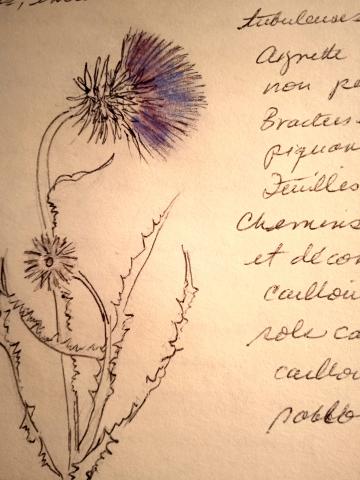 tubuleuses
Aigrette
non pe
Bractées
piquan
Feuilles
Chemins
et décom
caillou
sols ca
caillou